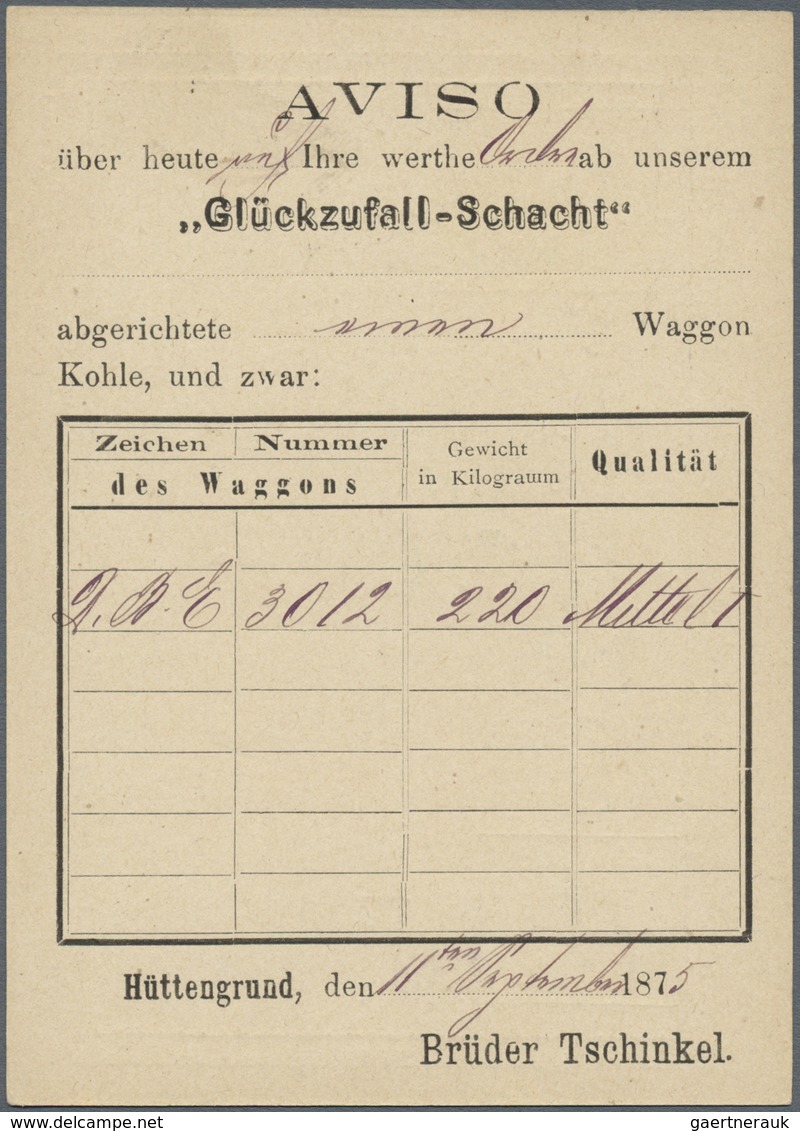 AVISO
über heute auf Ihre werthe Ordre ab unserem
„Glückzufall-Schacht“
abgerichtete einen Waggon
Kohle, und zwar:
Zeichen Nummer Gewicht in Kilogramm Qualität
des Waggons
D.B.E 3012 220 Mittel I
Hüttengrund, den 11ten September 1875
Brüder Tschinkel.
gaertnerauk